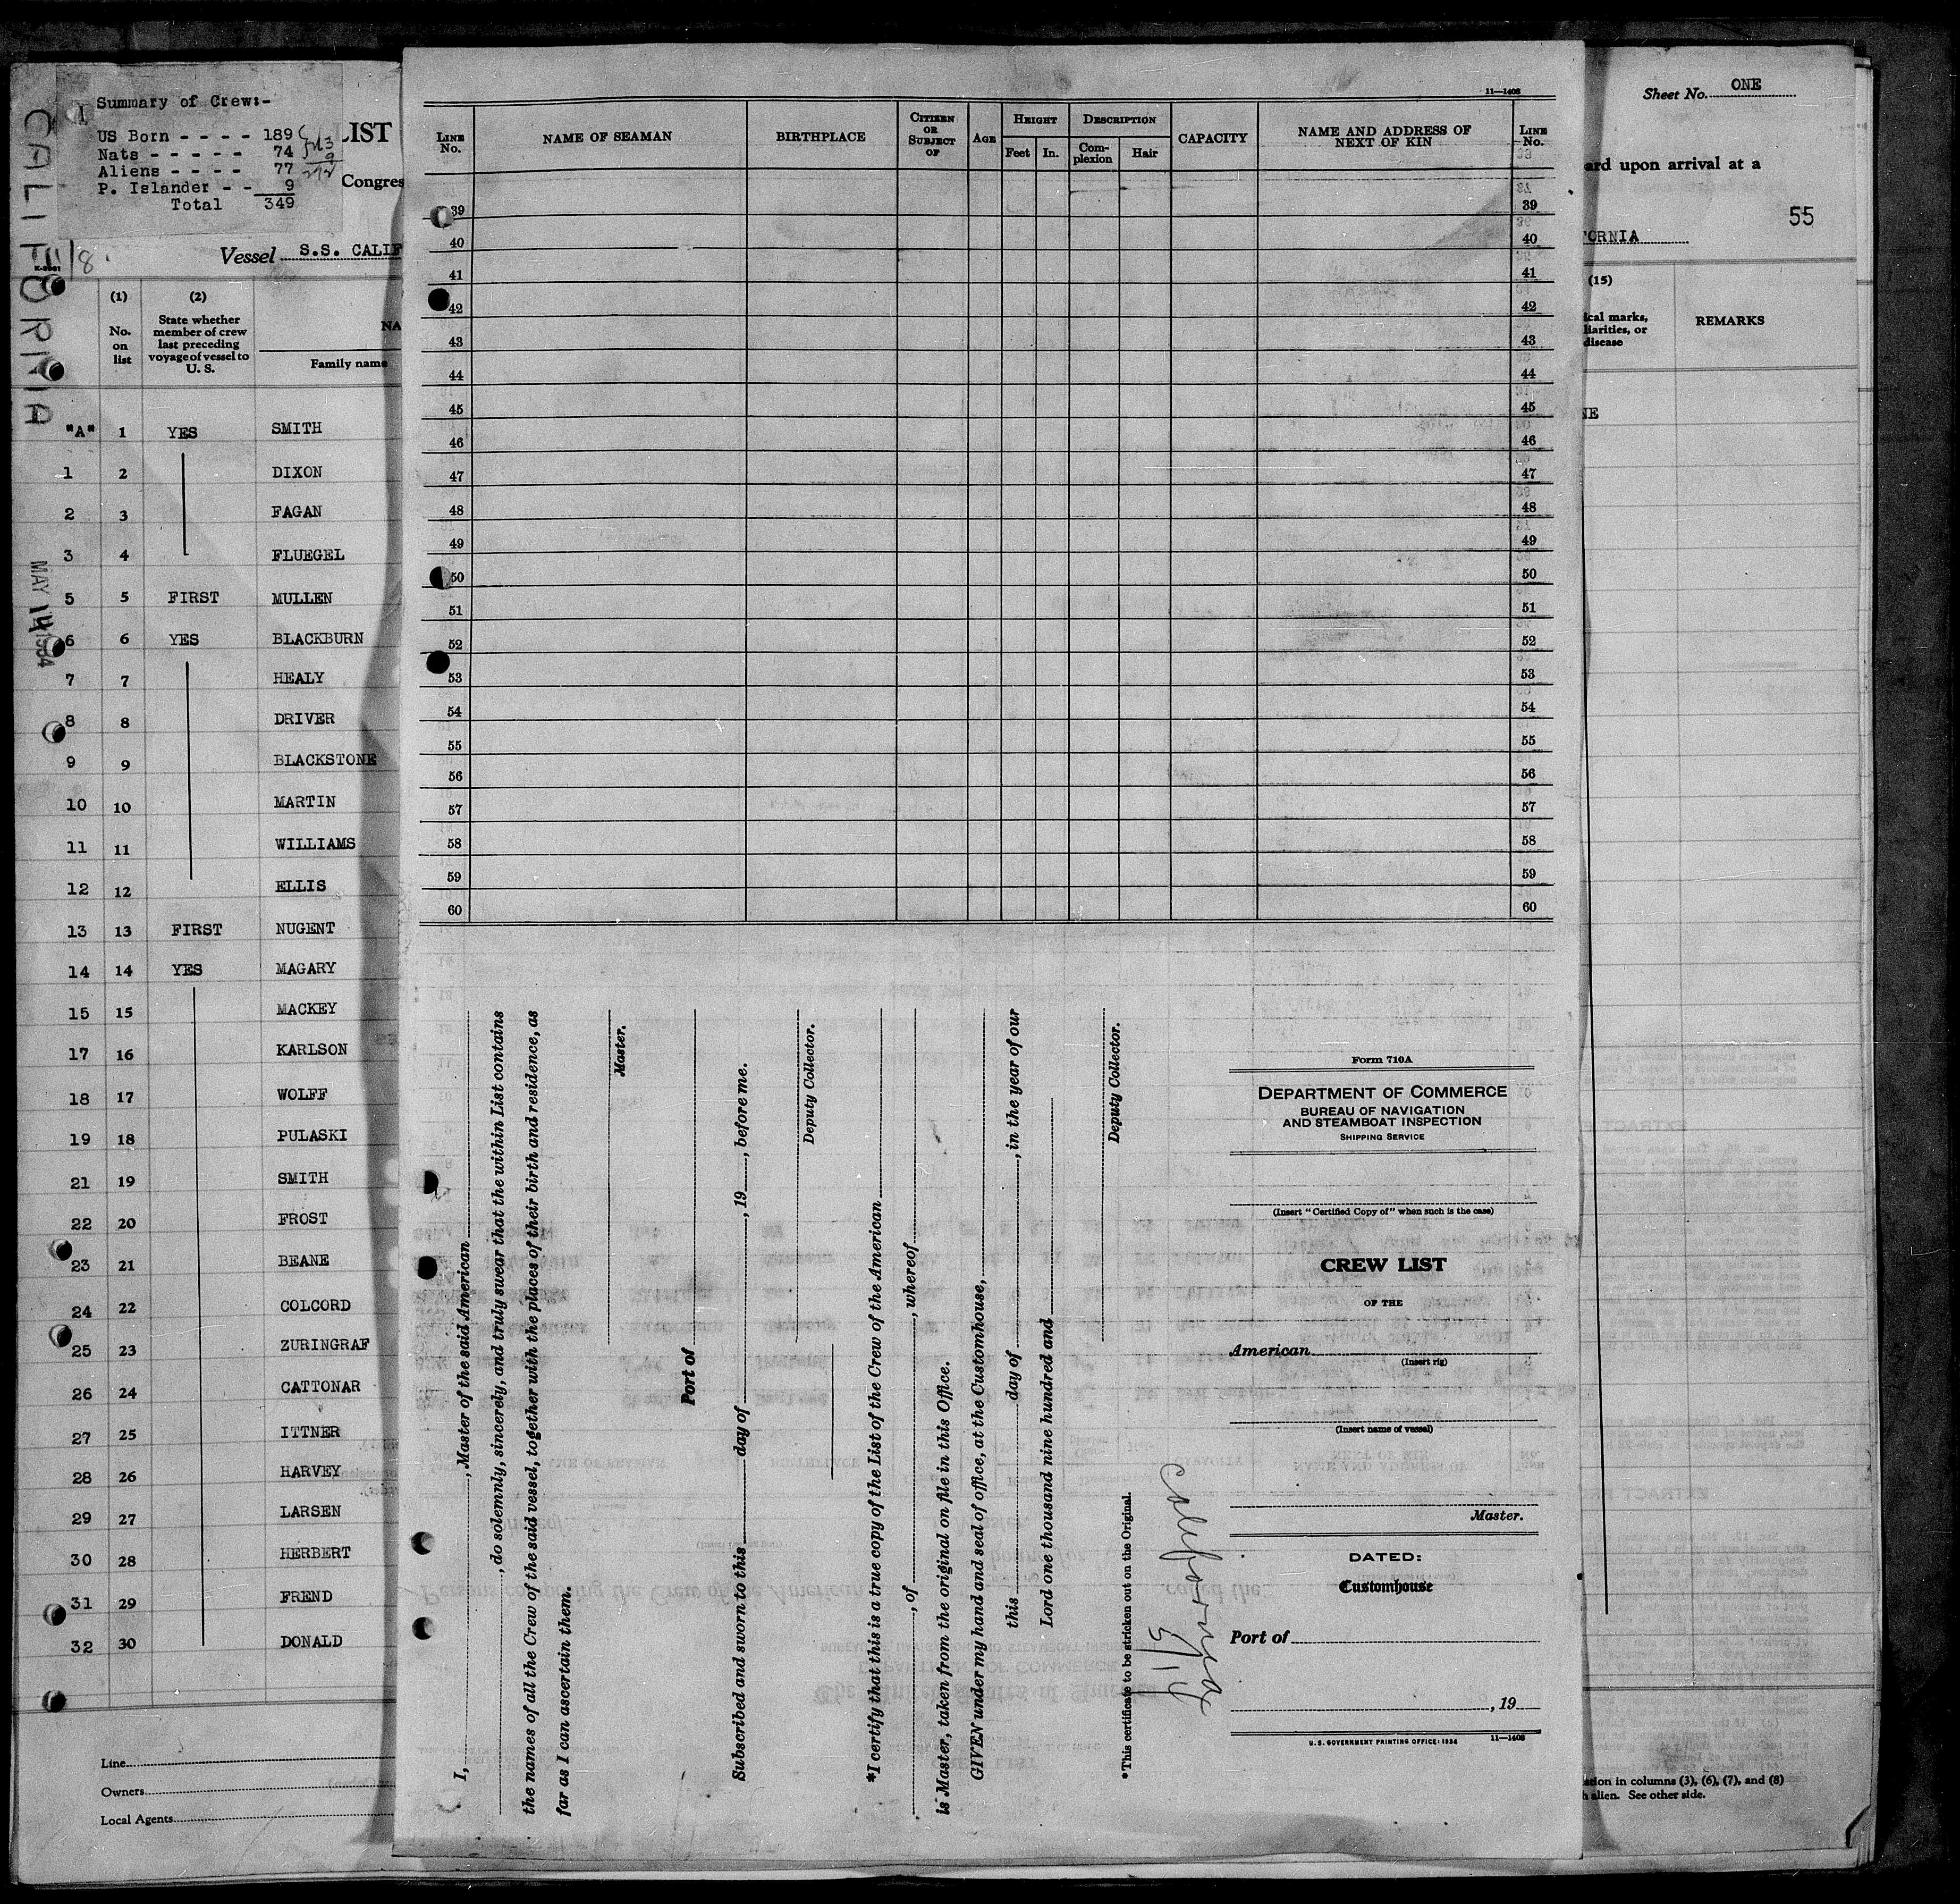 CALIFORNIA
Summary of Crew:-
US Born - - - - 189
Nats - - - - - 74
Aliens - - - - 77
P. Islander - - 9
Total 349
LIST
Congres
Vessel S.S. CALIF
MAY 14 1934
(1) No. on list
(2) State whether member of crew last preceding voyage of vessel to U. S.
NA
Family name
"A" 1 YES SMITH
1 2 DIXON
2 3 FAGAN
3 4 FLUEGEL
5 5 FIRST MULLEN
6 6 YES BLACKBURN
7 7 HEALY
8 8 DRIVER
9 9 BLACKSTONE
10 10 MARTIN
11 11 WILLIAMS
12 12 ELLIS
13 13 FIRST NUGENT
14 14 YES MAGARY
15 15 MACKEY
17 16 KARLSON
18 17 WOLFF
19 18 PULASKI
21 19 SMITH
22 20 FROST
23 21 BEANE
24 22 COLCORD
25 23 ZURINGRAF
26 24 CATTONAR
27 25 ITTNER
28 26 HARVEY
29 27 LARSEN
30 28 HERBERT
31 29 FREND
32 30 DONALD
Line
Owners
Local Agents
11—1408
LINE No.
NAME OF SEAMAN
BIRTHPLACE
CITIZEN OR SUBJECT OF
AGE
HEIGHT
Feet In.
DESCRIPTION
Com-plexion Hair
CAPACITY
NAME AND ADDRESS OF NEXT OF KIN
LINE No.
39 39
40 40
41 41
42 42
43 43
44 44
45 45
46 46
47 47
48 48
49 49
50 50
51 51
52 52
53 53
54 54
55 55
56 56
57 57
58 58
59 59
60 60
I, , Master of the said American
, do solemnly, sincerely, and truly swear that the within List contains
the names of all the Crew of the said vessel, together with the places of their birth and residence, as
far as I can ascertain them.
Master.
Port of
Subscribed and sworn to this day of , 19 , before me.
Deputy Collector.
*I certify that this is a true copy of the List of the Crew of the American
, of , whereof
is Master, taken from the original on file in this Office.
GIVEN under my hand and seal of office, at the Customhouse,
this day of , in the year of our
Lord one thousand nine hundred and
Deputy Collector.
*This certificate to be stricken out on the Original.
California
5/14
Form 710A
DEPARTMENT OF COMMERCE
BUREAU OF NAVIGATION
AND STEAMBOAT INSPECTION
SHIPPING SERVICE
(Insert "Certified Copy of" when such is the case)
CREW LIST
OF THE
American
(Insert rig)
(Insert name of vessel)
Master.
DATED:
Customhouse
Port of
, 19
U. S. GOVERNMENT PRINTING OFFICE: 1934 11—1408
Sheet No. ONE
ard upon arrival at a
55
ORNIA
(15)
ical marks,
liarities, or
disease
REMARKS
NE
ation in columns (3), (6), (7), and (8)
h alien. See other side.